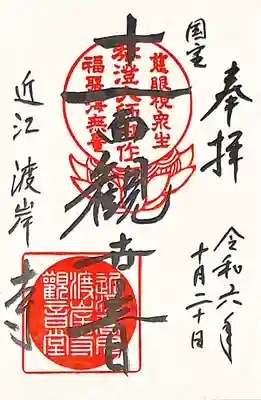 奉拝
国宝
令和六年
十月二十日
慈眼視衆生
福聚海無量
十一面観世音
近江 渡岸寺
渡岸寺
観音堂